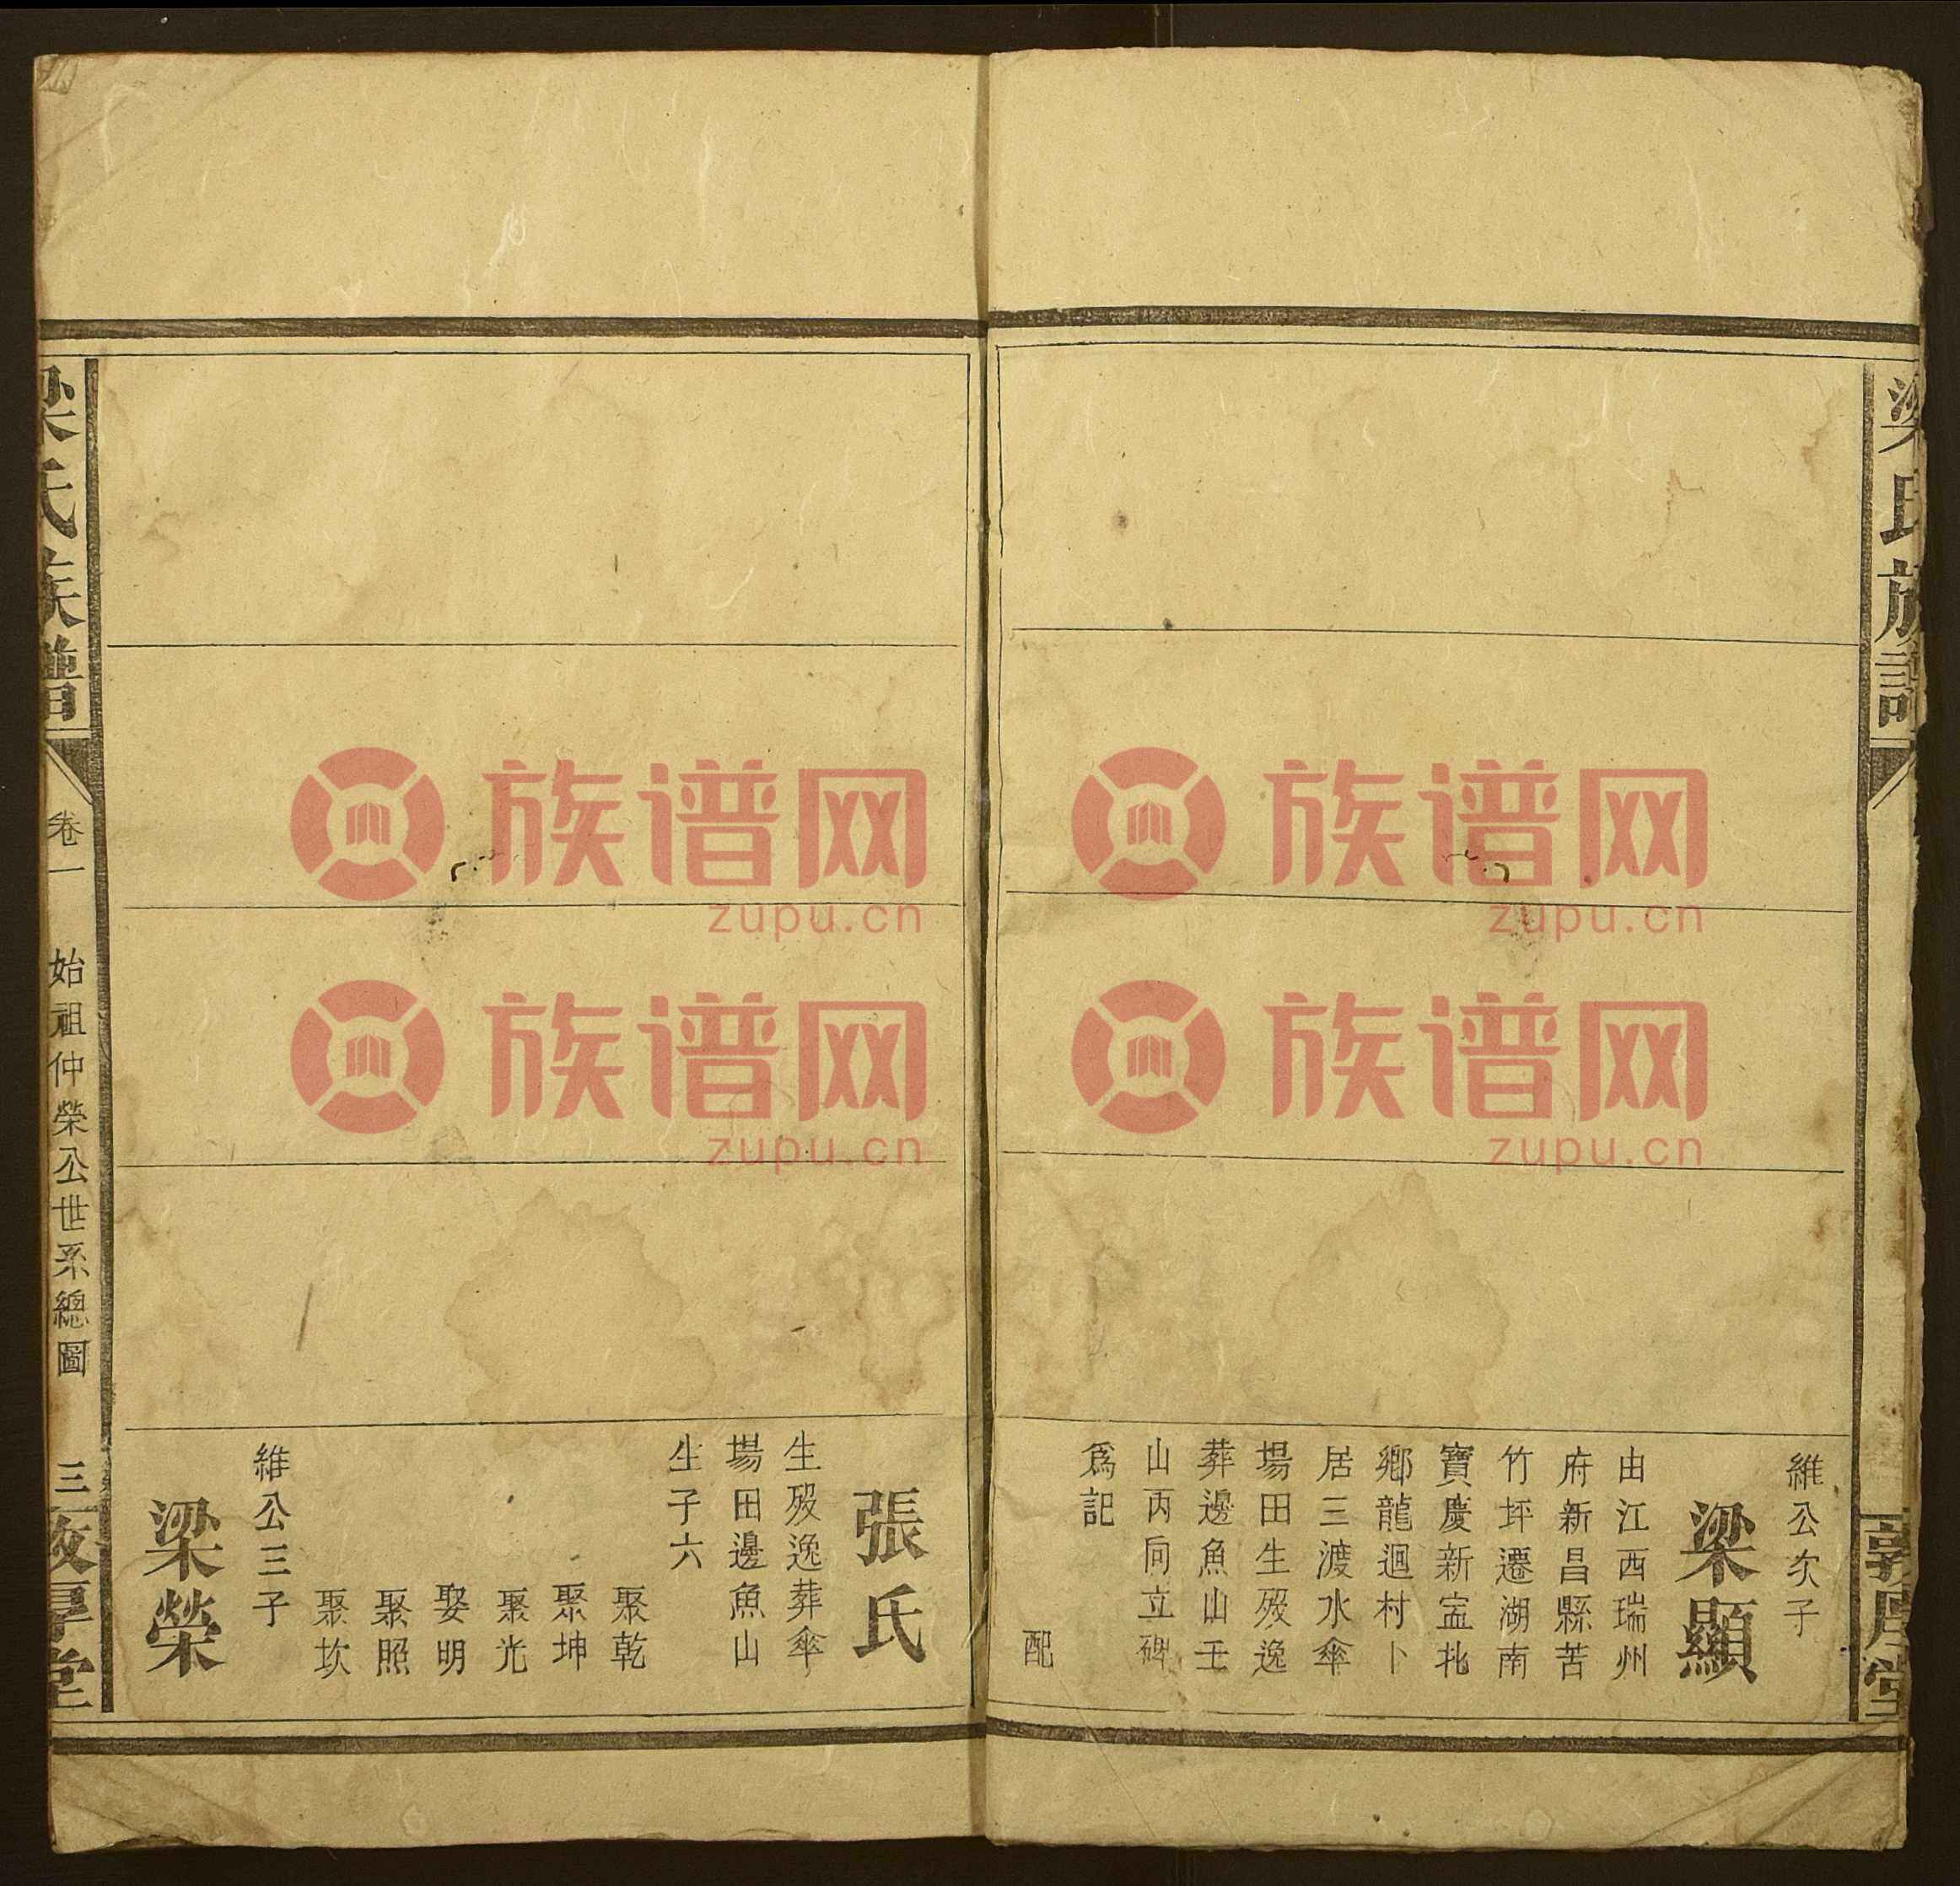 梁氏族譜
敦厚堂
維公次子
梁顯
由江西瑞州
府新昌縣苦
竹坪遷湖南
寶慶新寍北
鄉龍迴村卜
居三渡水傘
場田生歿逸
葬邊魚山壬
山丙向立碑
爲記
配
張氏
生歿逸葬傘
場田邊魚山
生子六
聚乾
聚坤
聚光
娶明
聚照
聚坎
維公三子
梁榮
梁氏族譜
卷一
始祖仲榮公世系總圖
三
敦厚堂
族谱网
zupu.cn
族谱网
zupu.cn
族谱网
zupu.cn
族谱网
zupu.cn